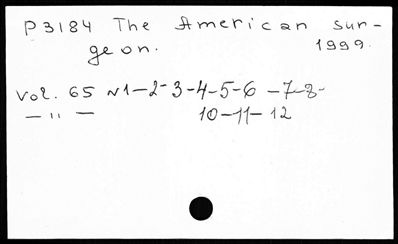 P3184 The American sur-
geon. 1999.
Vol. 65 N1-2-3-4-5-6-7-8-
— " — 10-11-12